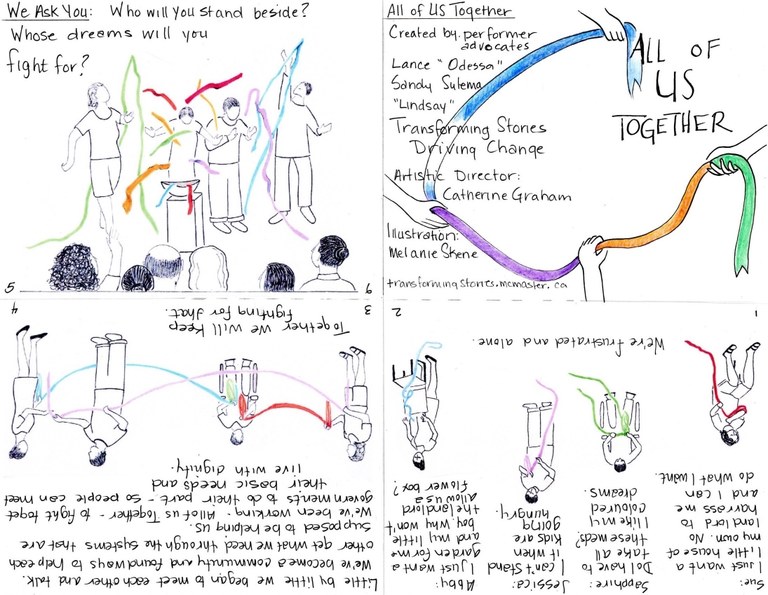 We Ask You: Who will you stand beside?
Whose dreams will you
fight for?
5
6
All of US Together
Created by: performer
advocates
Lance "Odessa"
Sandy Sulema
"Lindsay"
Transforming Stories
Driving Change
Artistic Director:
Catherine Graham
Illustration:
Melanie Skene
transformingstories.mcmaster.ca
ALL OF
US
TOGETHER
1
Sue:
I just want a
little house of
my own. No
landlord to
harrass me
and I can
do what I want.
Sapphire:
Do I have to
take all
these meds?
I like my
coloured
dreams.
2
Jessica:
I can't stand
it when
kids are
going
hungry.
Abby:
I just want a
garden for me
and my little
boy, why won't
the landlord
allow us a
flower box?
We're frustrated and alone.
3
4
Little by little we began to meet each other and talk.
We've become a community and found ways to help each
other get what we need, through the systems that are
supposed be helping us.
We've been working - All of us Together - to fight to get
governments to do their part - so people can meet
their basic needs and
live with dignity.
Together we will keep
fighting for that.